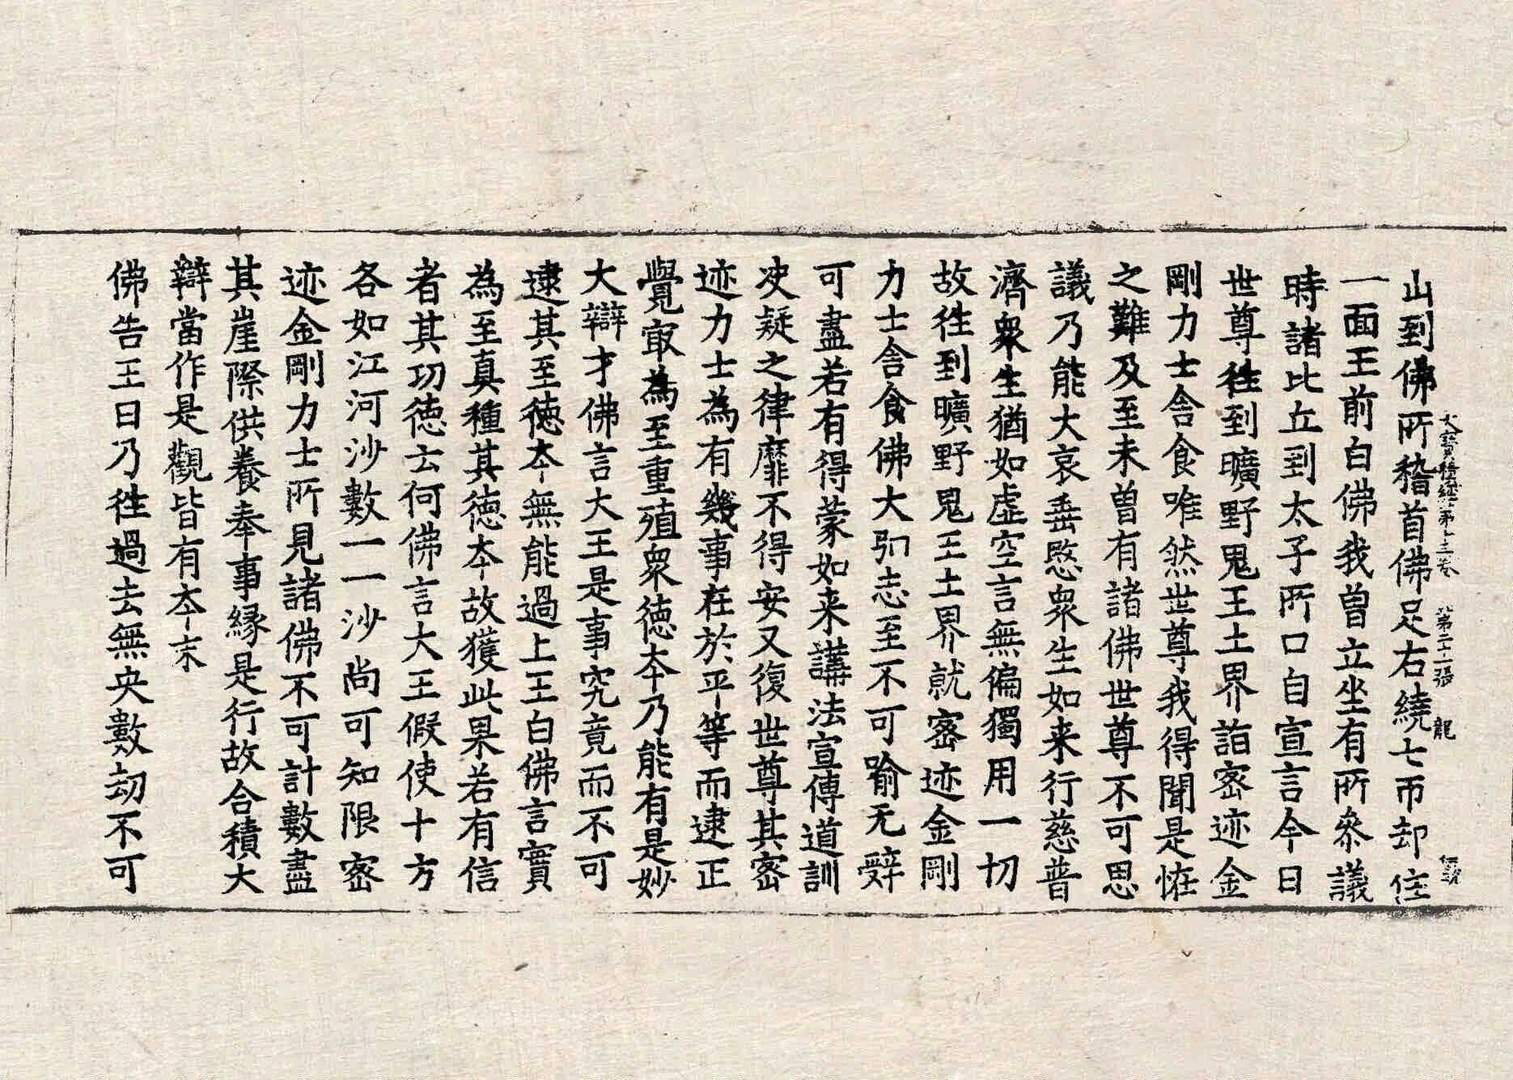 山到佛所稽首佛足右繞七帀却住
大寶積經第十三卷 第二十一張 龍
一面王前白佛我曽立坐有所叅議
時諸比丘到太子所口自宣言今日
世尊徃到曠野鬼王土界詣宻迹金
剛力士舎食唯然世尊我得聞是恠
之難及至未曽有諸佛世尊不可思
議乃能大哀垂愍衆生如来行慈普
濟衆生猶如虚空言無偏獨用一切
故徃到曠野鬼王土界就宻迹金剛
力士舎食佛大弘志至不可喻无辤
可盡若有得蒙如来講法宣傳道訓
决疑之律靡不得安又復世尊其宻
迹力士為有幾事在於平等而逮正
覺㝡為至重殖衆徳夲乃能有是妙
大辯才佛言大王是事究竟而不可
逮其至徳夲無能過上王白佛言實
為至真種其徳夲故獲此果若有信
者其功徳云何佛言大王假使十方
各如江河沙數一一沙尚可知限宻
迹金剛力士所見諸佛不可計數盡
其崖際供養奉事縁是行故合積大
辯當作是觀皆有夲末
佛告王曰乃徃過去無央數劫不可